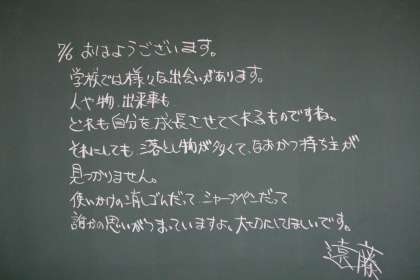 7/6 おはようございます。
学校では様々な出会いがあります。
人や物、出来事も
どれも自分を成長させてくれるものですね。
それにしても、落とし物が多くて、なおかつ持ち主が
見つかりません。
使いかけの消しゴムだって シャープペンだって
誰かの思いがつまっていますよ。大切にしてほしいです。
遠藤